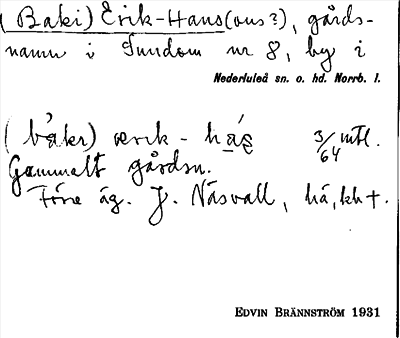 (Baki) Erik-Hans(ons?), gårds-
namn i Sundom nr 8, by i
Nederluleå sn. o. hd. Norrb. l.
(båkr) ærik - hás 3/64 mtl.
Gammalt gårdsn.
Förre äg. J. Näsvall, hä, kh †.
EDVIN BRÄNNSTRÖM 1931